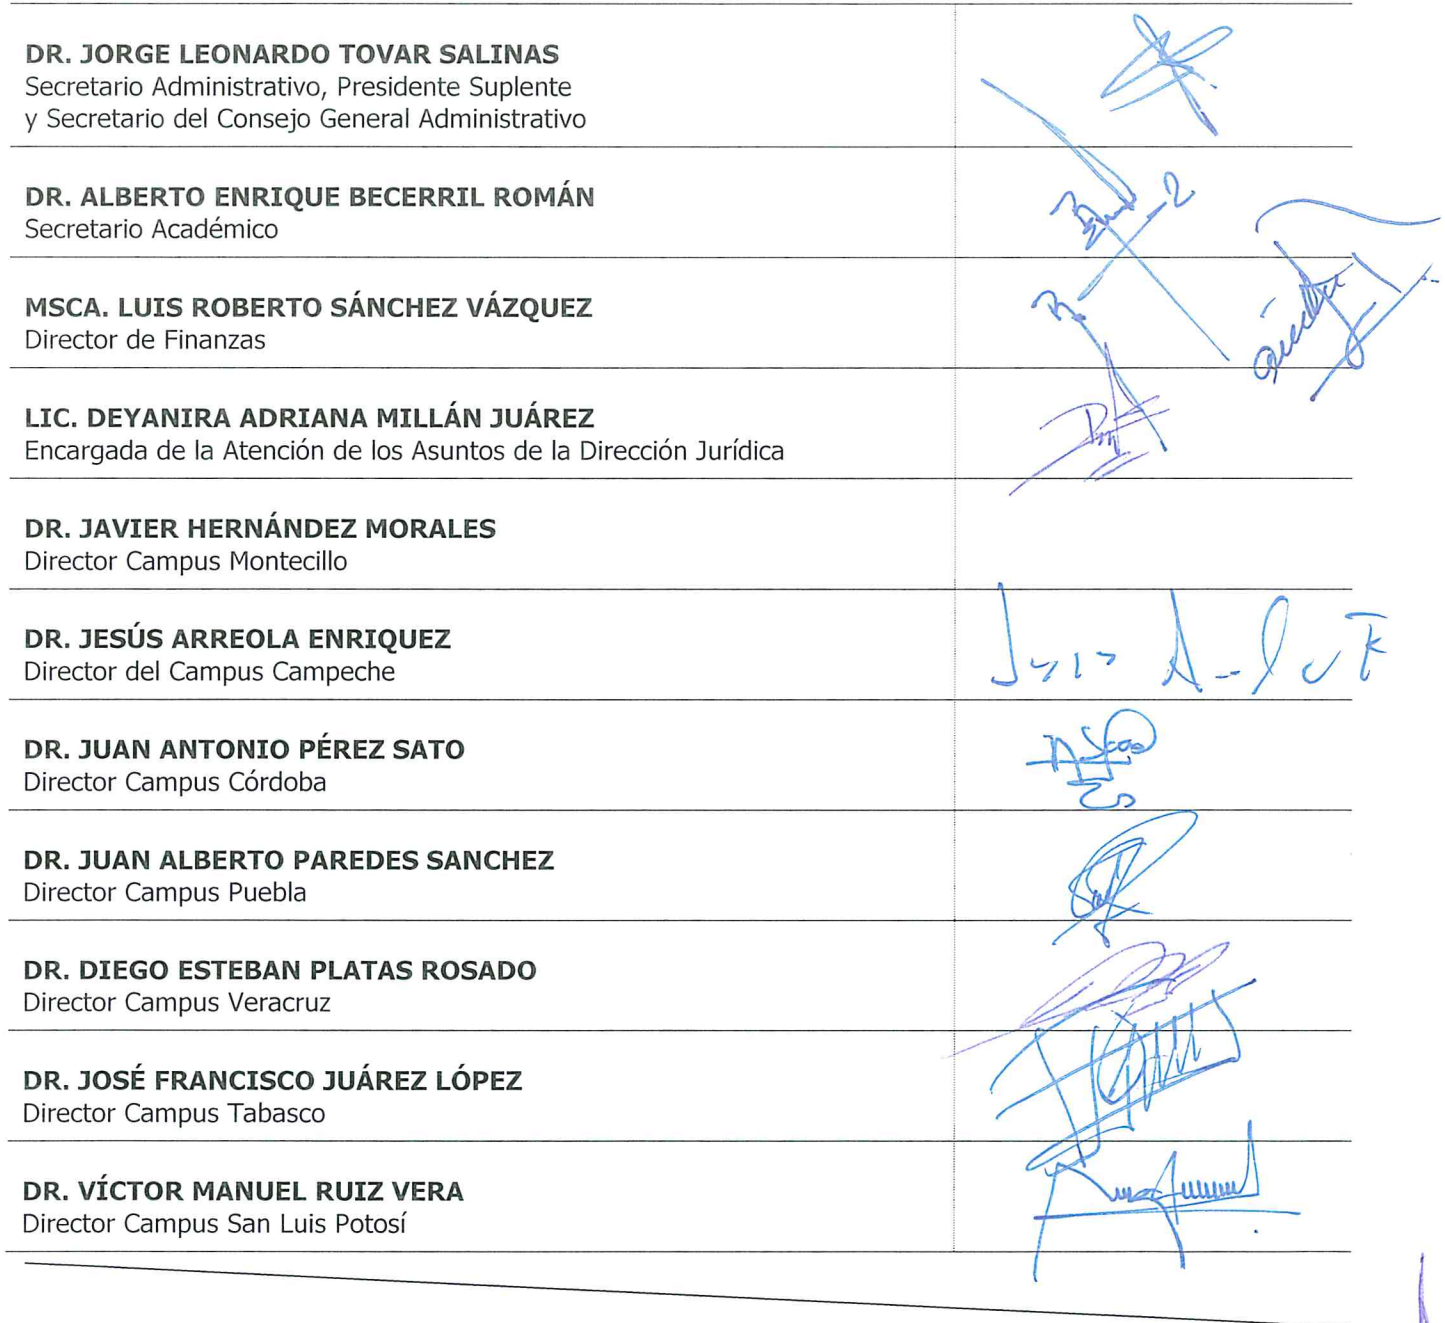 DR. JORGE LEONARDO TOVAR SALINAS
Secretario Administrativo, Presidente Suplente
y Secretario del Consejo General Administrativo
DR. ALBERTO ENRIQUE BECERRIL ROMÁN
Secretario Académico
MSCA. LUIS ROBERTO SÁNCHEZ VÁZQUEZ
Director de Finanzas
LIC. DEYANIRA ADRIANA MILLÁN JUÁREZ
Encargada de la Atención de los Asuntos de la Dirección Jurídica
DR. JAVIER HERNÁNDEZ MORALES
Director Campus Montecillo
DR. JESÚS ARREOLA ENRIQUEZ
Director del Campus Campeche
DR. JUAN ANTONIO PÉREZ SATO
Director Campus Córdoba
DR. JUAN ALBERTO PAREDES SANCHEZ
Director Campus Puebla
DR. DIEGO ESTEBAN PLATAS ROSADO
Director Campus Veracruz
DR. JOSÉ FRANCISCO JUÁREZ LÓPEZ
Director Campus Tabasco
DR. VÍCTOR MANUEL RUIZ VERA
Director Campus San Luis Potosí